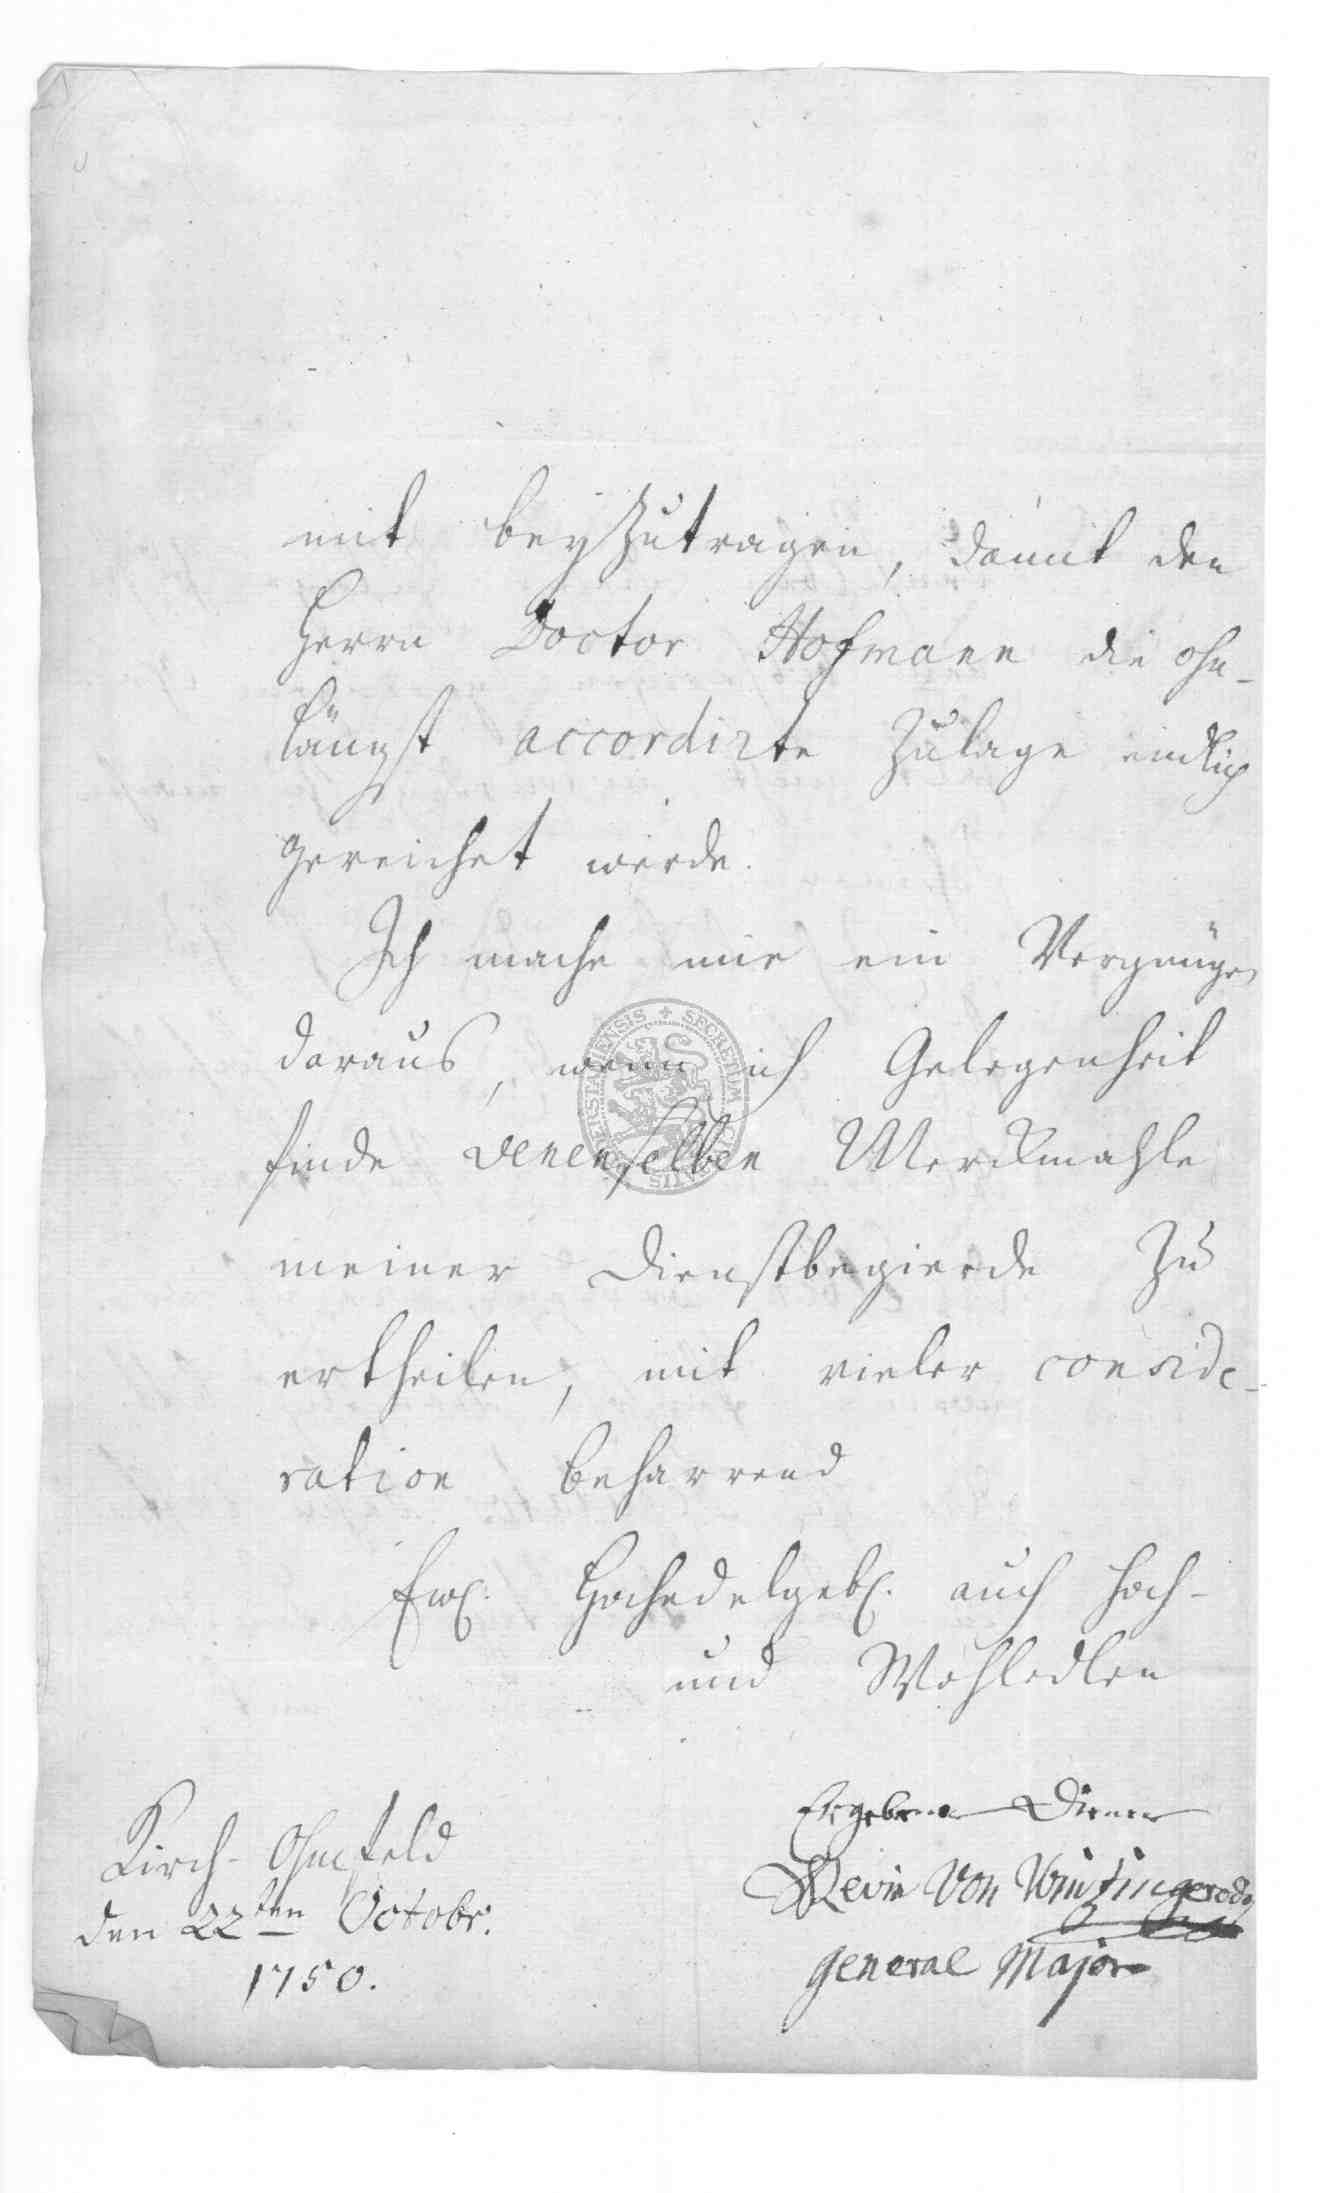 mit beyzutragen, damit den
Herrn Doctor Hofmann die ohn-
längst accordirte Zulage endlich
gereichet werde.
Ich mache mir ein Vergnügen
daraus, wenn ich Gelegenheit
finde denenselben Merckmahle
meiner Dienstbegierde zu
ertheilen, mit vieler conside-
ration beharrend
Ew. Hochedelgeb. auch Hoch-
und Wohledlen
Kirch-Ohmfeld
den 22ten Octobr.
1750.
Ergebener Diener
Levin von Wintzingeroda
general Major
SECRETUM